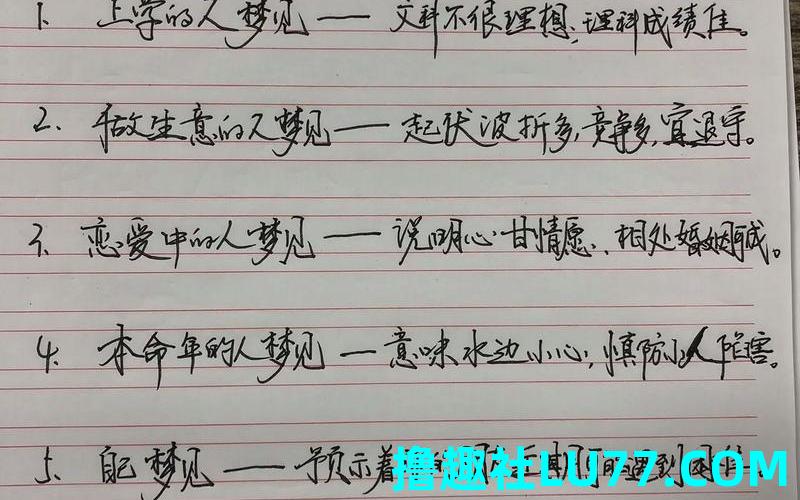 1、上学的人梦见——文科不很理想,理科成绩佳。
2、做生意的人梦见——起伏波折多,竞争多,宜退守。
3、恋爱中的人梦见——说明心甘情愿,相处婚姻成。
4、本命年的人梦见——意味水边小心,慎防小人陷害。
5、自己梦见——预示着 遇到困
撸趣社LU77.COM